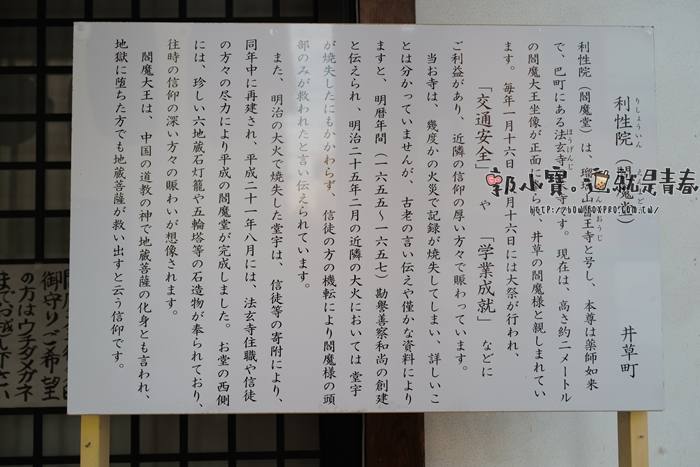 利性院（閻魔堂）
りしょういん
井草町
利性院（閻魔堂）は瑠
山
王寺と号し、本尊は薬師如来
で、巴町にある法玄寺
ほうげんじ
です。現在は、高さ約二メートル
の閻魔大王坐像が正面に
られ、井草の閻魔様と親しまれてい
ます。毎年一月十六日
月十六日には大祭が行われ、
「交通安全」や「学業成就」などに
ご利益があり、近隣の信仰の厚い方々で賑わっています。
当お寺は、幾度かの火災で記録が焼失してしまい、詳しいこ
とは分かっていませんが、古老の言い伝えや僅かな資料により
ますと、明暦年間（一六五五～一六五七）勘誉善察和尚の創建
と伝えられ、明治二十五年二月の近隣の大火においては堂宇
が焼失したにもかかわらず、信徒の方の機転により閻魔様の頭
部のみが救われたと言い伝えられています。
また、明治の大火で焼失した堂宇は、信徒等の寄附により、
同年中に再建され、平成二十一年八月には、法玄寺住職や信徒
の方々の尽力により平成の閻魔堂が完成しました。お堂の西側
には、珍しい六地蔵石灯籠や五輪塔等の石造物が奉られており、
往時の信仰の深い方々の賑わいが想像されます。
閻魔大王は、中国の道教の神で地蔵菩薩の化身とも言われ、
地獄に堕ちた方でも地蔵菩薩が救い出すと云う信仰です。
御守りご希望
の方はウチダメガネ
までお越し下さい
郭小寶。這就是青春
http://bowboxpro.com.tw/